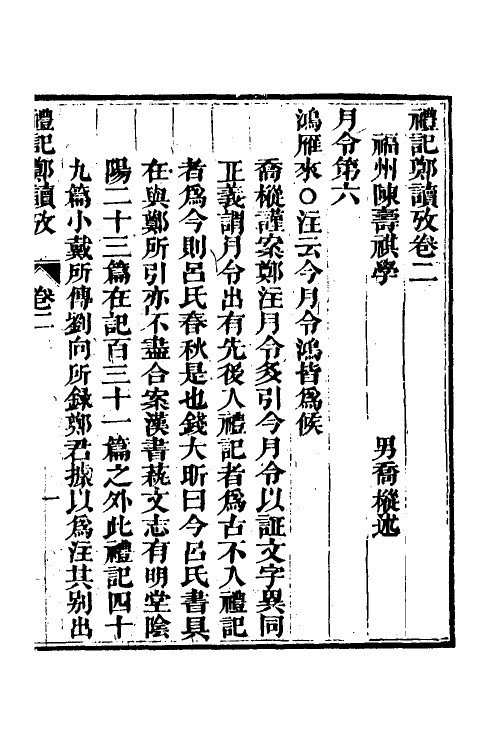 禮記鄭讀攷卷二
福州陳壽祺學 男喬樅述
月令第六
鴻雁來○注云今月令鴻皆爲候
喬樅謹案鄭注月令多引今月令以証文字異同
正義謂月令出有先後入禮記者爲古不入禮記
者爲今則呂氏春秋是也錢大昕曰今呂氏書具
在與鄭所引亦不盡合案漢書蓺文志有明堂陰
陽二十三篇在記百三十一篇之外此禮記四十
九篇小戴所傳劉向所錄鄭君據以爲注其別出
禮記鄭讀攷 卷二 一